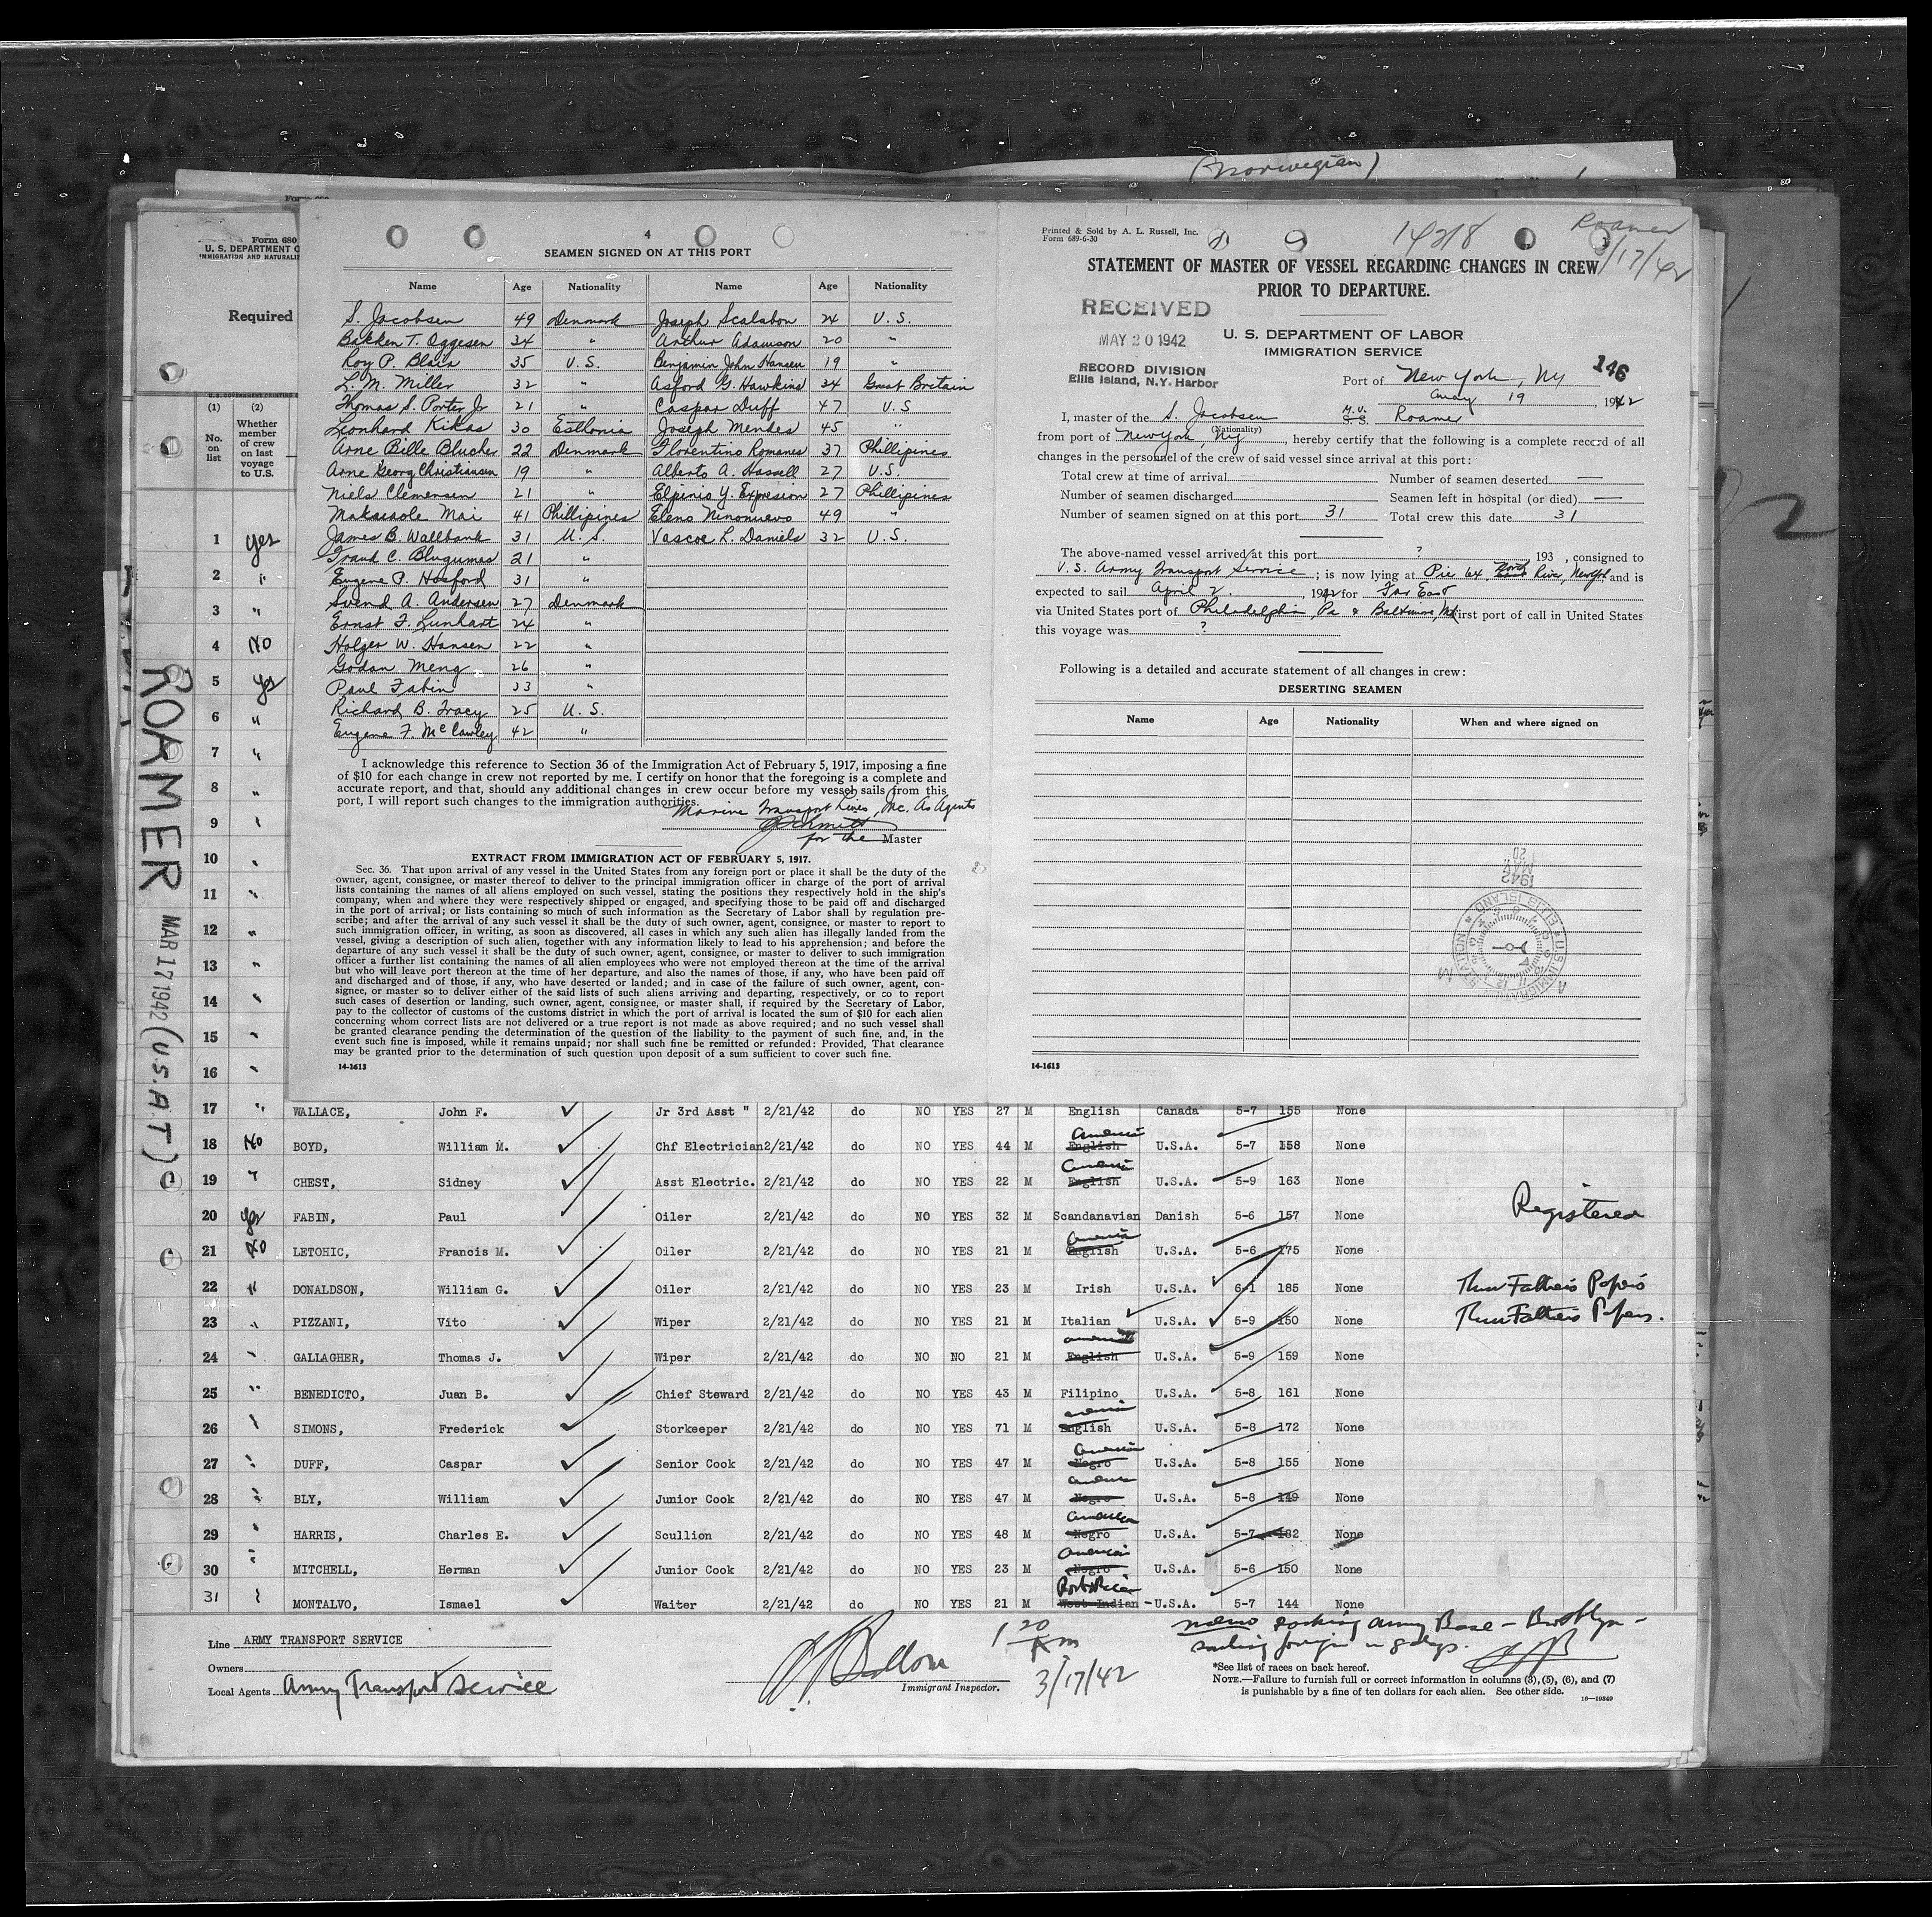 (Norwegian)
Form 680
U. S. DEPARTMENT O
IMMIGRATION AND NATURALI
Required
(1) (2)
No. on list
Whether member of crew on last voyage to U.S.
1 Yes
2 "
3 "
4 No
5 Yes
6 "
7 "
8 "
9 "
10 "
11 "
12 "
13 "
14 "
15 "
16 "
ROAMER MAR 17 1942 (U.S.A.T)
4
SEAMEN SIGNED ON AT THIS PORT
Name Age Nationality Name Age Nationality
S. Jacobsen 49 Denmark Joseph Scalabon 24 U.S.
Bakken T. Oggesen 34 " Arthur Adamson 20 "
Roy P. Blair 35 U.S. Benjamin John Hansen 19 "
L. M. Miller 32 " Asford G. Hawkins 34 Great Britain
Thomas S. Porter Jr 21 " Caspar Duff 47 U.S
Leonhard Kikas 30 Esthonia Joseph Mendes 45 "
Arne Bille Blucher 22 Denmark Florentino Romanes 37 Phillipines
Arne Georg Christiansen 19 " Alberto A. Hassell 27 U.S.
Niels Clemensen 21 " Elpinio Y. Expresion 27 Phillipines
Makaiaole Mai 41 Phillipines Eleno Ninonuevo 49 "
James B. Wallbank 31 U.S. Vascoe L. Daniels 32 U.S.
Frank C. 21 "
Eugene P. Hosford 31 "
Svend A. Andersen 27 Denmark
Ernst F. Lunhart 24 "
Holger W. Hansen 22 "
Godan Meng 26 "
Paul Fabin 33 "
Richard B. Tracy 25 U.S.
Eugene F. McCawley 42 "
I acknowledge this reference to Section 36 of the Immigration Act of February 5, 1917, imposing a fine
of $10 for each change in crew not reported by me. I certify on honor that the foregoing is a complete and
accurate report, and that, should any additional changes in crew occur before my vessel sails from this
port, I will report such changes to the immigration authorities.
Marine Transport Lines, Inc. As Agents
Schmitt
for the Master
EXTRACT FROM IMMIGRATION ACT OF FEBRUARY 5, 1917.
Sec. 36. That upon arrival of any vessel in the United States from any foreign port or place it shall be the duty of the
owner, agent, consignee, or master thereof to deliver to the principal immigration officer in charge of the port of arrival
lists containing the names of all aliens employed on such vessel, stating the positions they respectively hold in the ship's
company, when and where they were respectively shipped or engaged, and specifying those to be paid off and discharged
in the port of arrival; or lists containing so much of such information as the Secretary of Labor shall by regulation pre-
scribe; and after the arrival of any such vessel it shall be the duty of such owner, agent, consignee, or master to report to
such immigration officer, in writing, as soon as discovered, all cases in which any such alien has illegally landed from the
vessel, giving a description of such alien, together with any information likely to lead to his apprehension; and before the
departure of any such vessel it shall be the duty of such owner, agent, consignee, or master to deliver to such immigration
officer a further list containing the names of all alien employees who were not employed thereon at the time of the arrival
but who will leave port thereon at the time of her departure, and also the names of those, if any, who have been paid off
and discharged and of those, if any, who have deserted or landed; and in case of the failure of such owner, agent, con-
signee, or master so to deliver either of the said lists of such aliens arriving and departing, respectively, or co to report
such cases of desertion or landing, such owner, agent, consignee, or master shall, if required by the Secretary of Labor,
pay to the collector of customs of the customs district in which the port of arrival is located the sum of $10 for each alien
concerning whom correct lists are not delivered or a true report is not made as above required; and no such vessel shall
be granted clearance pending the determination of the question of the liability to the payment of such fine, and, in the
event such fine is imposed, while it remains unpaid; nor shall such fine be remitted or refunded: Provided, That clearance
may be granted prior to the determination of such question upon deposit of a sum sufficient to cover such fine.
14-1613
Printed & Sold by A. L. Russell, Inc.
Form 689-6-30
14218
Roamer
3/17/42
STATEMENT OF MASTER OF VESSEL REGARDING CHANGES IN CREW
PRIOR TO DEPARTURE.
RECEIVED
MAY 20 1942
RECORD DIVISION
Ellis Island, N.Y. Harbor
U. S. DEPARTMENT OF LABOR
IMMIGRATION SERVICE
146
Port of New York, NY
May 19, 1942
I, master of the S. Jacobsen M.V. S.S. Roamer
(Nationality)
from port of New York, NY, hereby certify that the following is a complete record of all
changes in the personnel of the crew of said vessel since arrival at this port:
Total crew at time of arrival Number of seamen deserted —
Number of seamen discharged Seamen left in hospital (or died) —
Number of seamen signed on at this port 31 Total crew this date 31
The above-named vessel arrived at this port ? 193 , consigned to
U.S. Army Transport Service; is now lying at Pier 64 North East River, New York and is
expected to sail April 2, 1942 for Far East
via United States port of Philadelphia, Pa & Baltimore, Md first port of call in United States
this voyage was ?
Following is a detailed and accurate statement of all changes in crew:
DESERTING SEAMEN
Name Age Nationality When and where signed on
1942
MAY
20
U.S. IMMIGRATION STATION
ELLIS ISLAND
14-1613
17 " WALLACE, John F. Jr 3rd Asst " 2/21/42 do NO YES 27 M English Canada 5-7 155 None
18 No BOYD, William M. Chf Electrician 2/21/42 do NO YES 44 M English American U.S.A. 5-7 158 None
19 " CHEST, Sidney Asst Electric. 2/21/42 do NO YES 22 M English American U.S.A. 5-9 163 None
20 Yes FABIN, Paul Oiler 2/21/42 do NO YES 32 M Scandanavian Danish 5-6 157 None Registered
21 No LETOHIC, Francis M. Oiler 2/21/42 do NO YES 21 M English American U.S.A. 5-6 175 None
22 " DONALDSON, William G. Oiler 2/21/42 do NO YES 23 M Irish U.S.A. 6-1 185 None Thru Father's Papers
23 " PIZZANI, Vito Wiper 2/21/42 do NO YES 21 M Italian U.S.A. 5-9 150 None Thru Father's Papers.
24 " GALLAGHER, Thomas J. Wiper 2/21/42 do NO NO 21 M English American U.S.A. 5-9 159 None
25 " BENEDICTO, Juan B. Chief Steward 2/21/42 do NO YES 43 M Filipino U.S.A. 5-8 161 None
26 " SIMONS, Frederick Storkeeper 2/21/42 do NO YES 71 M English American U.S.A. 5-8 172 None
27 " DUFF, Caspar Senior Cook 2/21/42 do NO YES 47 M Negro American U.S.A. 5-8 155 None
28 " BLY, William Junior Cook 2/21/42 do NO YES 47 M Negro American U.S.A. 5-8 149 None
29 " HARRIS, Charles E. Scullion 2/21/42 do NO YES 48 M Negro American U.S.A. 5-7 182 None
30 " MITCHELL, Herman Junior Cook 2/21/42 do NO YES 23 M Negro American U.S.A. 5-6 150 None
31 " MONTALVO, Ismael Waiter 2/21/42 do NO YES 21 M West Indian Porto Rican U.S.A. 5-7 144 None
Line ARMY TRANSPORT SERVICE
Owners
Local Agents Army Transport Service
Immigrant Inspector.
1 20 Am
3/17/42
Memo docking Army Base - Brooklyn -
sailing foreign in 8 days.
*See list of races on back hereof.
NOTE.—Failure to furnish full or correct information in columns (3), (5), (6), and (7)
is punishable by a fine of ten dollars for each alien. See other side.
16-19349